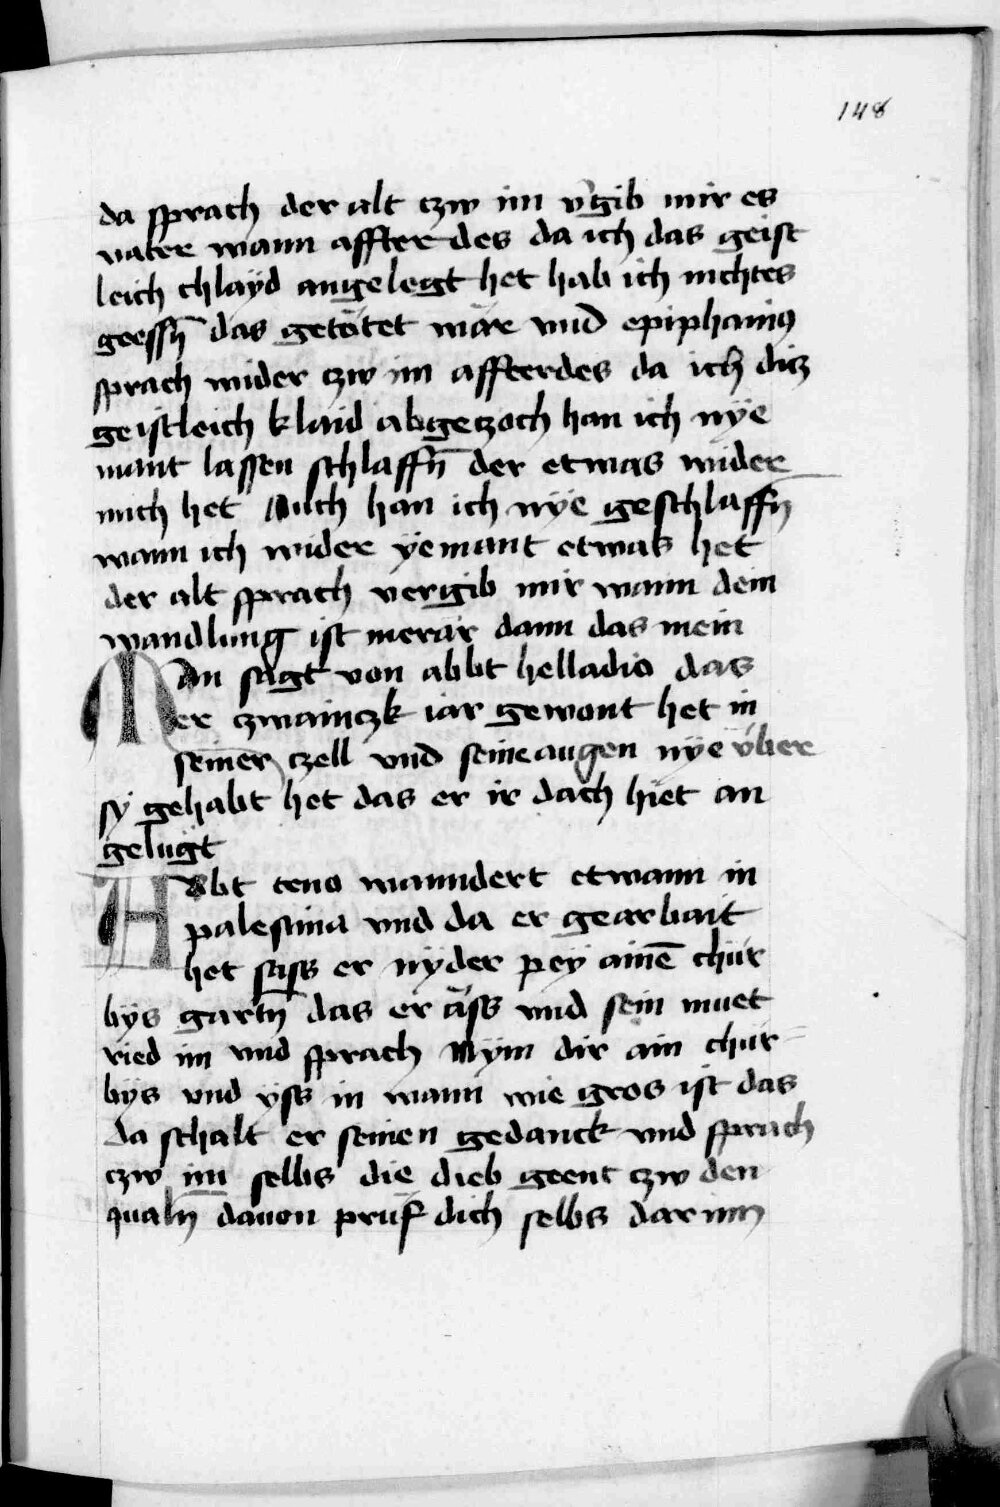 148
da sprach der alt czw im v̾gib mir es
vater wann affter des da ich das geist
leich chlaÿd angelegt het hab ich nichtes
geessn̄ das getötet wäre vnd epiphaniꝯ
sprach wider czw im affterdes da ich dicz
geistleich klaid abgeczoch han ich nÿe
mant lassen schlaffn̄ der etwas wider
mich het Auch han ich nÿe geschlaffn̄
wann ich wider ÿemant etwas het
der alt sprach vergib mir wann dein
wandlung ist merär dann das mein
Man sagt von abbt helladio das
er czwainczk iar gewont het in
seiner czell vnd seine augen nÿe über
sy gehabt het das er ir dach hiet an
gelügt
Abbt ceno wanndert etwann in
palestina vnd da er gearbait
het sass er nÿder peÿ ainē chür
bÿs gartn̄ das er äss vnd sein muet
ried im vnd sprach Nÿm dir ain chür
bÿs vnd ÿss in wann wie gros ist das
da schalt er seinen gedanck vnd sprach
czw im selbs die dieb geent czw den
qualn̄ dauon prüf dich selbs dar inn